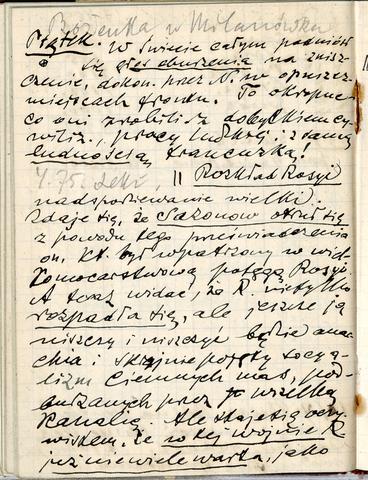 Bożenka w Milanówku
Piątek. W świecie całym podniósł
się głos oburzenia na znisz-
czenie, dokon. przez N. w opuszcz.
miejscach frontu. To okropne
co oni zrobili z dobytkiem cy-
wiliz., pracy ludzkiej i z samą
ludnością francuzką!
4.75. Leki, || Rozkład Rosyi
nadspodziewanie wielki.
Zdaje się, że Sazonow otruł się
z powodu tego przeświadczenia
on, kt. był wpatrzony w wiel-
komocarstwową potęgę Rosyi.
A teraz widać, że R. nie tylko
rozpadła się, ale jeszcze ją
niszczy i niszczyć będzie anar-
chia i skrajnie pojęty socya-
lizm ciemnych mas, pod-
burzanych przez wszelką
kanalię. Ale staje się oczy-
wistem, że w tej wojnie R.
już niewiele warta, jako